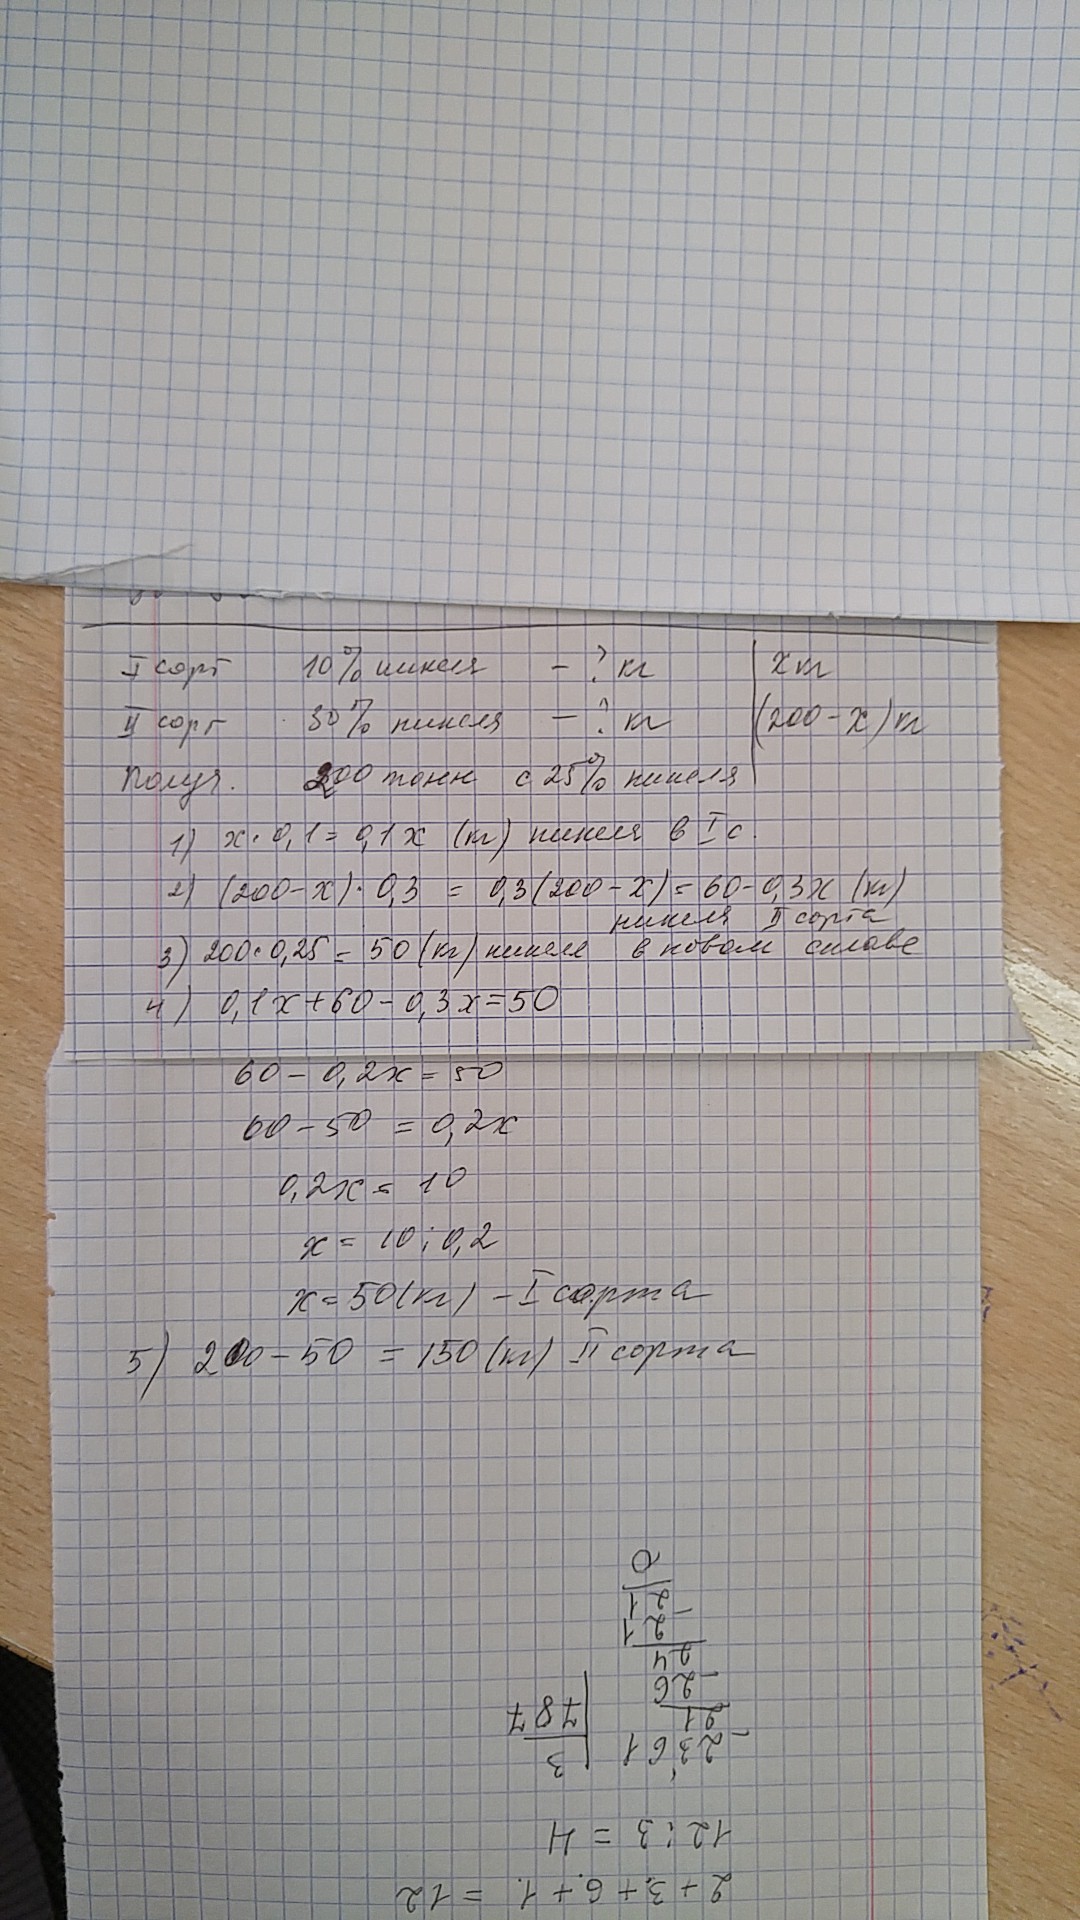 I сорт 10% никеля - ? кг | x кг
II сорт 30% никеля - ? кг | (200 - x) кг
Получ. 200 тонн с 25% никеля
1) x · 0,1 = 0,1x (кг) никеля в I с.
2) (200 - x) · 0,3 = 0,3(200 - x) = 60 - 0,3x (кг)
никеля II сорта
3) 200 · 0,25 = 50 (кг) никеля в новом сплаве
4) 0,1x + 60 - 0,3x = 50
60 - 0,2x = 50
60 - 50 = 0,2x
0,2x = 10
x = 10 : 0,2
x = 50 (кг) - I сорта
5) 200 - 50 = 150 (кг) II сорта
2 + 3 + 6 + 1 = 12
12 : 3 = 4
2361 | 3
21 | 787
26
24
21
21
0